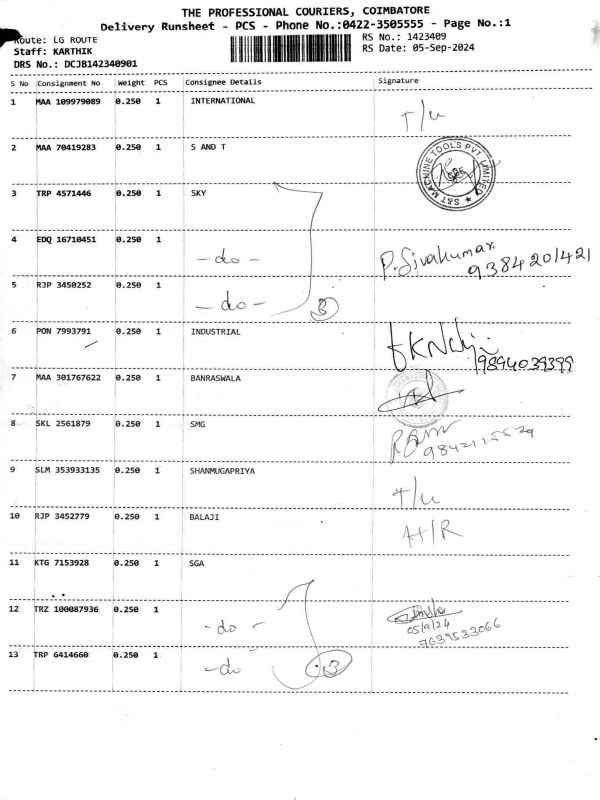 THE PROFESSIONAL COURIERS, COIMBATORE
Delivery Runsheet - PCS - Phone No.:0422-3505555 - Page No.:1
Route: LG ROUTE RS No.: 1423409
Staff: KARTHIK RS Date: 05-Sep-2024
DRS No.: DCJB142340901
S No Consignment No Weight PCS Consignee Details Signature
1 MAA 109979089 0.250 1 INTERNATIONAL T/u
2 MAA 70419283 0.250 1 S AND T S&T MACHINE TOOLS PVT. LIMITED
3 TRP 4571446 0.250 1 SKY
4 EDQ 16710451 0.250 1 -do- P. Sivakumar
9384201421
5 RJP 3450252 0.250 1 -do- 3
6 PON 7993791 0.250 1 INDUSTRIAL
9894039399
7 MAA 301767622 0.250 1 BANRASWALA
8 SKL 2561879 0.250 1 SMG
9 SLM 353933135 0.250 1 SHANMUGAPRIYA T/u
10 RJP 3452779 0.250 1 BALAJI A/R
11 KTG 7153928 0.250 1 SGA
12 TRZ 100087936 0.250 1 -do-
05/9/24
7639533066
13 TRP 6414660 0.250 1 -do- 3